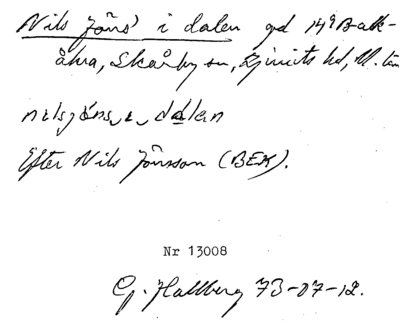 Nils Jöns' i dalen gd 14⁹ Balk-
åkra, Skårby sn, Ljunits hd, M.län
nilsjöns i dalen
Efter Nils Jönsson (BEX).
Nr 13008
G. Hallberg 73-07-12.